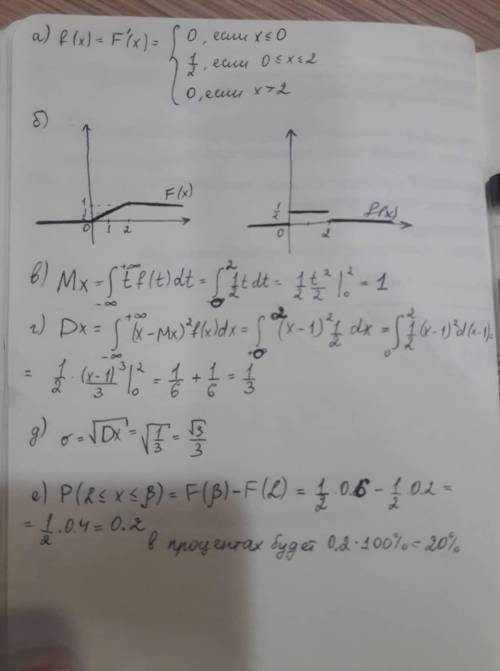 а) f(x) = F'(x) = { 0, если x ≤ 0
1/2, если 0 ≤ x ≤ 2
0, если x > 2
б)
1 1/2 0 1 2 F(x)
1/2 0 2 f(x)
в) Mx = ∫_{-∞}^{+∞} t f(t) dt = ∫_0^2 1/2 t dt = 1/2 t²/2 |_0^2 = 1
г) Dx = ∫_{-∞}^{+∞} (x-Mx)² f(x) dx = ∫_0^2 (x-1)² 1/2 dx = ∫_0^2 1/2 (x-1)² d(x-1) =
= 1/2 · (x-1)³/3 |_0^2 = 1/6 + 1/6 = 1/3
д) σ = √Dx = √(1/3) = √3/3
е) P(2 ≤ x ≤ β) = F(β) - F(2) = 1/2 · 0.6 - 1/2 · 0.2 =
= 1/2 · 0.4 = 0.2
в процентах будет 0.2 · 100% = 20%